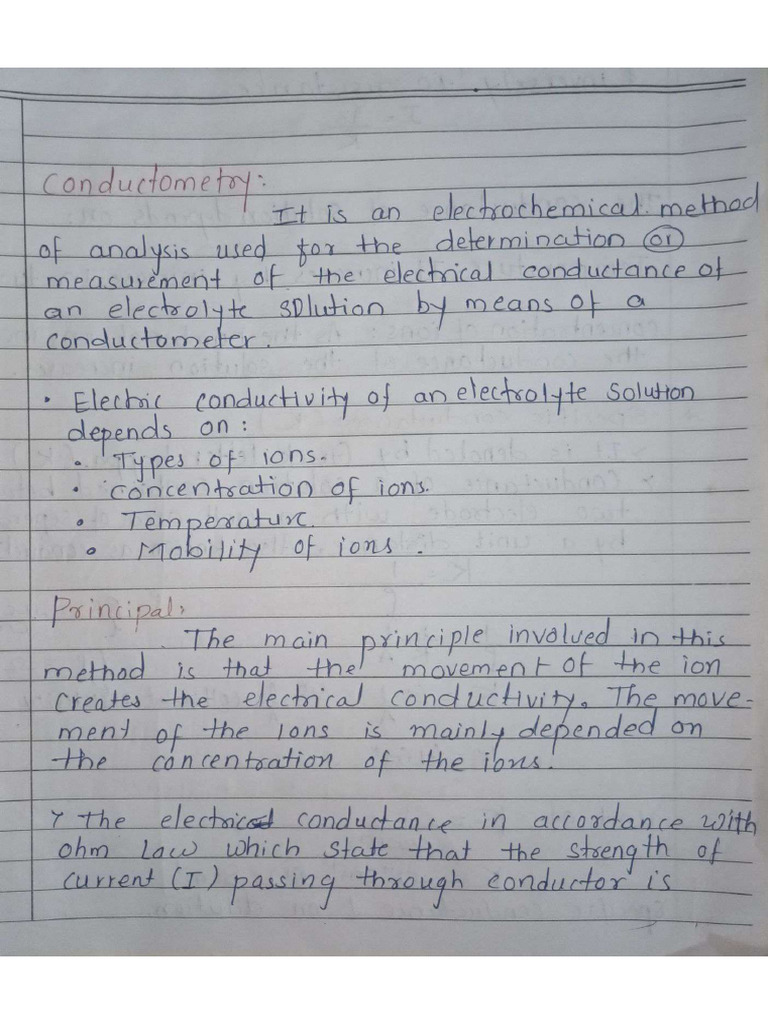 Conductometry:
It is an electrochemical method
of analysis used for the determination or
measurement of the electrical conductance of
an electrolyte solution by means of a
conductometer.
• Electric conductivity of an electrolyte solution
depends on:
• Types of ions.
• concentration of ions.
• Temperature.
• Mobility of ions.
Principal:
The main principle involved in this
method is that the movement of the ion
creates the electrical conductivity. The move-
ment of the ions is mainly depended on
the concentration of the ions.
> The electrical conductance in accordance with
ohm law which state that the strength of
current (I) passing through conductor is